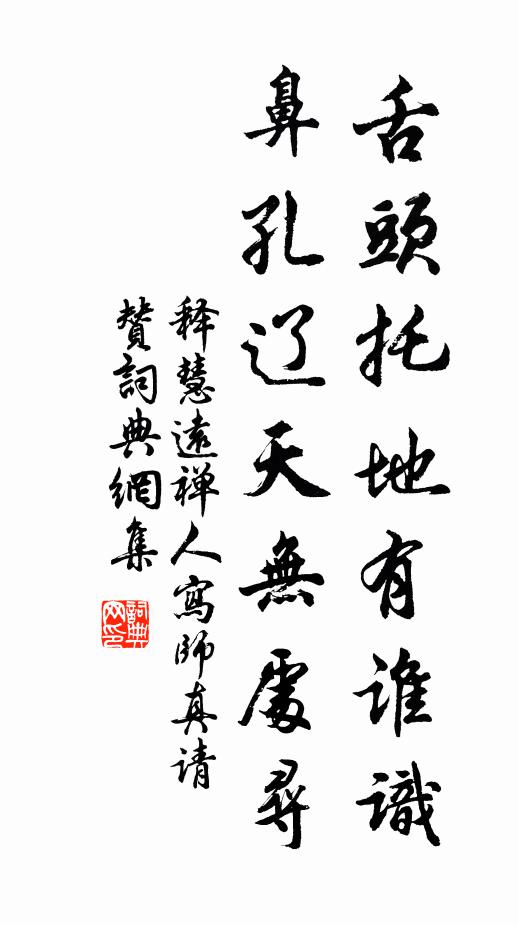 舌頭托地有誰識
鼻孔辽天無處尋
释慧遠禅人寫師真请
赞詞典網集
詞典网印